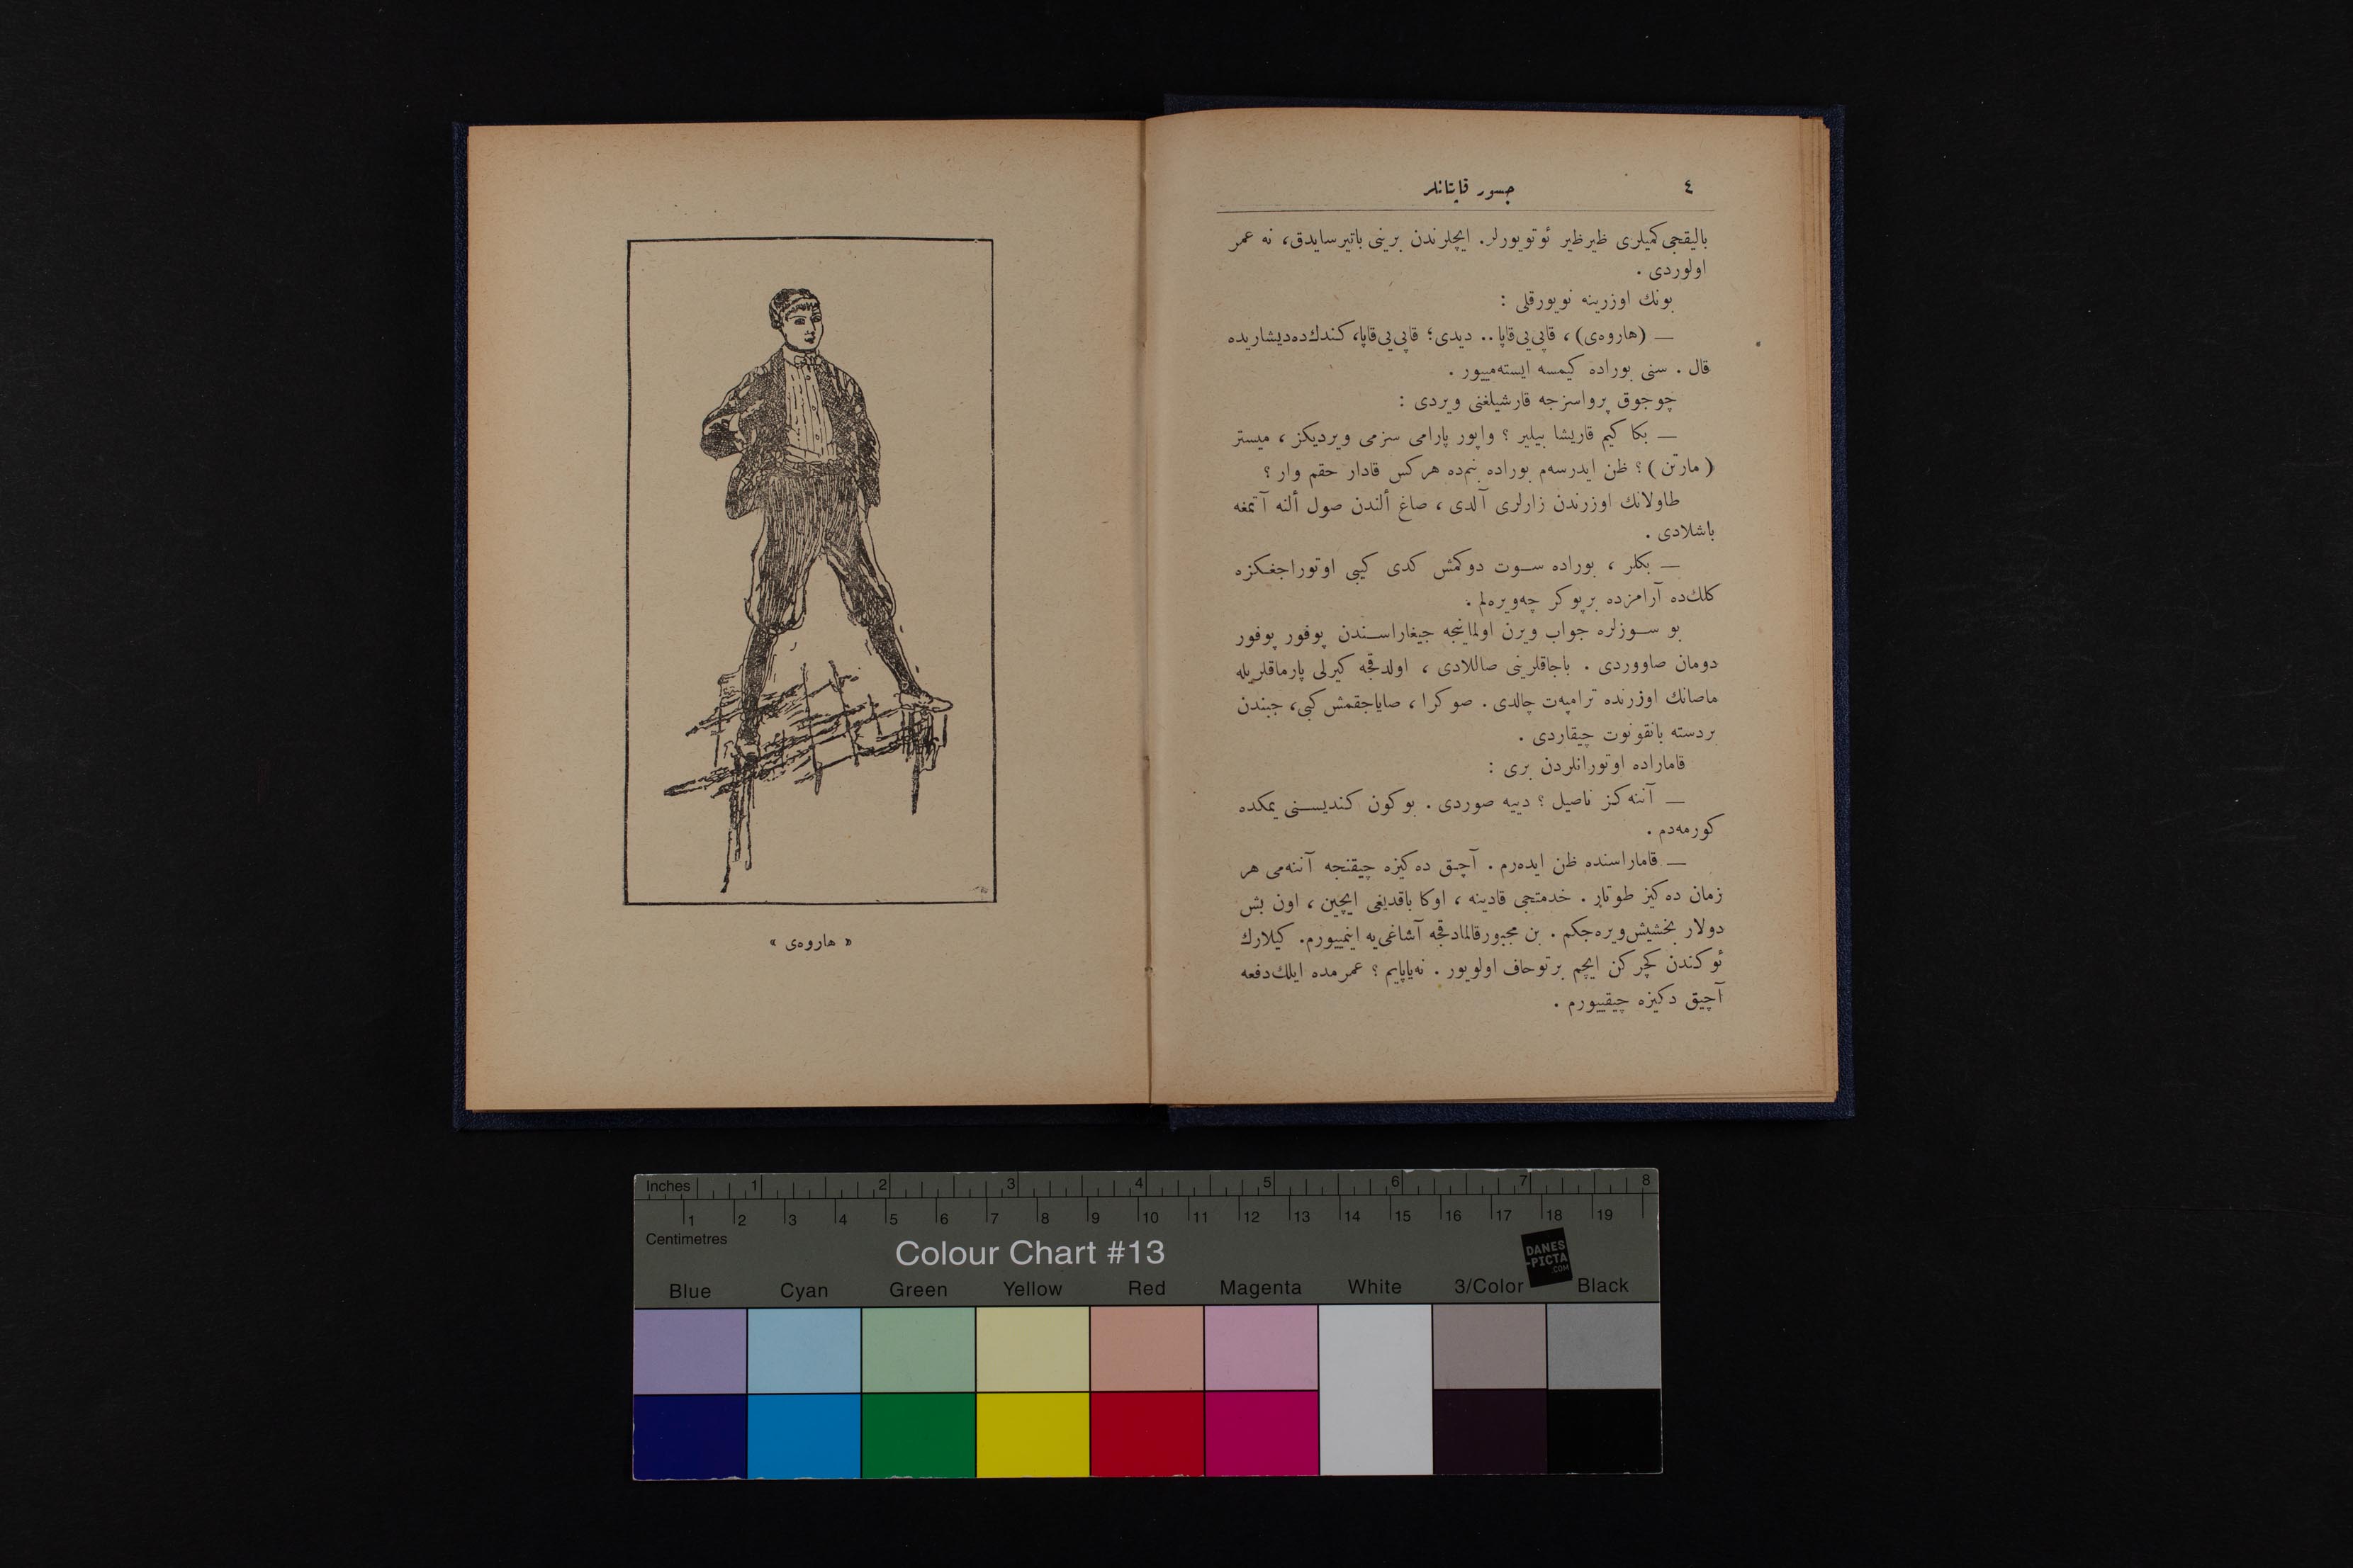 ٤
جسور قاپتانلر
باليقجی كميلری ظيرظير ئوتويورلر. ايچلرندن برينی باتيرسايدق، نه عمر
اولوردی .
بونك اوزرينه نويورقلی :
— (هاروه‌ی) ، قاپی‌يی‌قاپا.. ديدی؛ قاپی‌يی‌قاپا، كندك‌ده‌ديشاريده
قال . سنی بوراده كيمسه ايسته‌مييور .
چوجوق پرواسزجه قارشيلغنی ويردی :
— بكا كيم قاريشا بيلير ؟ واپور پارامی سزمی ويرديكز ، ميستر
( مارتن ) ؟ ظن ايدرسه‌م بوراده بنم‌ده هركس قادار حقم وار ؟
طاولانك اوزرندن زارلری آلدی ، صاغ ألندن صول ألنه آتمغه
باشلادی .
— بكلر ، بوراده سوت دوكمش كدی كيبی اوتوراجغكزه
كلك‌ده آرامزده برپوكر چه‌ويره‌لم .
بو سوزلره جواب ويرن اولماينجه جيغاراسندن پوفور پوفور
دومان صاووردی . باجاقلرينی صاللادی ، اولدقجه كيرلی پارماقلريله
ماصانك اوزرنده ترامپه‌ت چالدی . صوكرا ، صاياجقمش كبی، جبندن
بردسته بانقونوت چيقاردی .
قاماراده اوتورانلردن بری :
— آننه‌كز ناصيل ؟ دييه صوردی . بوكون كنديسنی يمكده
كورمه‌دم .
— قاماراسنده ظن ايده‌رم . آچيق ده‌كيزه چيقنجه آننه‌می هر
زمان ده‌كيز طوتار . خدمتجی قادينه ، اوكا باقديغی ايچين ، اون بش
دولار بخشيش‌ويره‌جكم . بن مجبورقالمادقجه آشاغی‌يه اينمييورم. كيلارك
ئوكندن كچركن ايچم برتوحاف اولويور . نه‌ياپايم ؟ عمرمده ايلك‌دفعه
آچيق دكيزه چيقييورم .
« هاروه‌ی »
Inches 1 2 3 4 5 6 7 8
1 2 3 4 5 6 7 8 9 10 11 12 13 14 15 16 17 18 19
Centimetres
Colour Chart #13
DANES
-PICTA
.COM
Blue Cyan Green Yellow Red Magenta White 3/Color Black